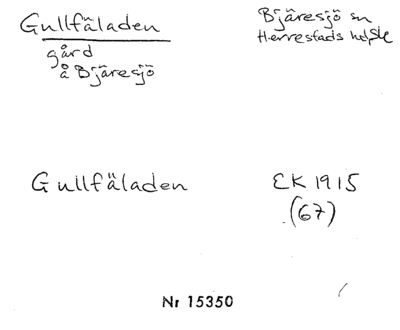 Gullfäladen
gård
å Bjäresjö
Bjäresjö sn
Herrestads hd, Sk
Gullfäladen
EK 1915
(67)
Nr 15350